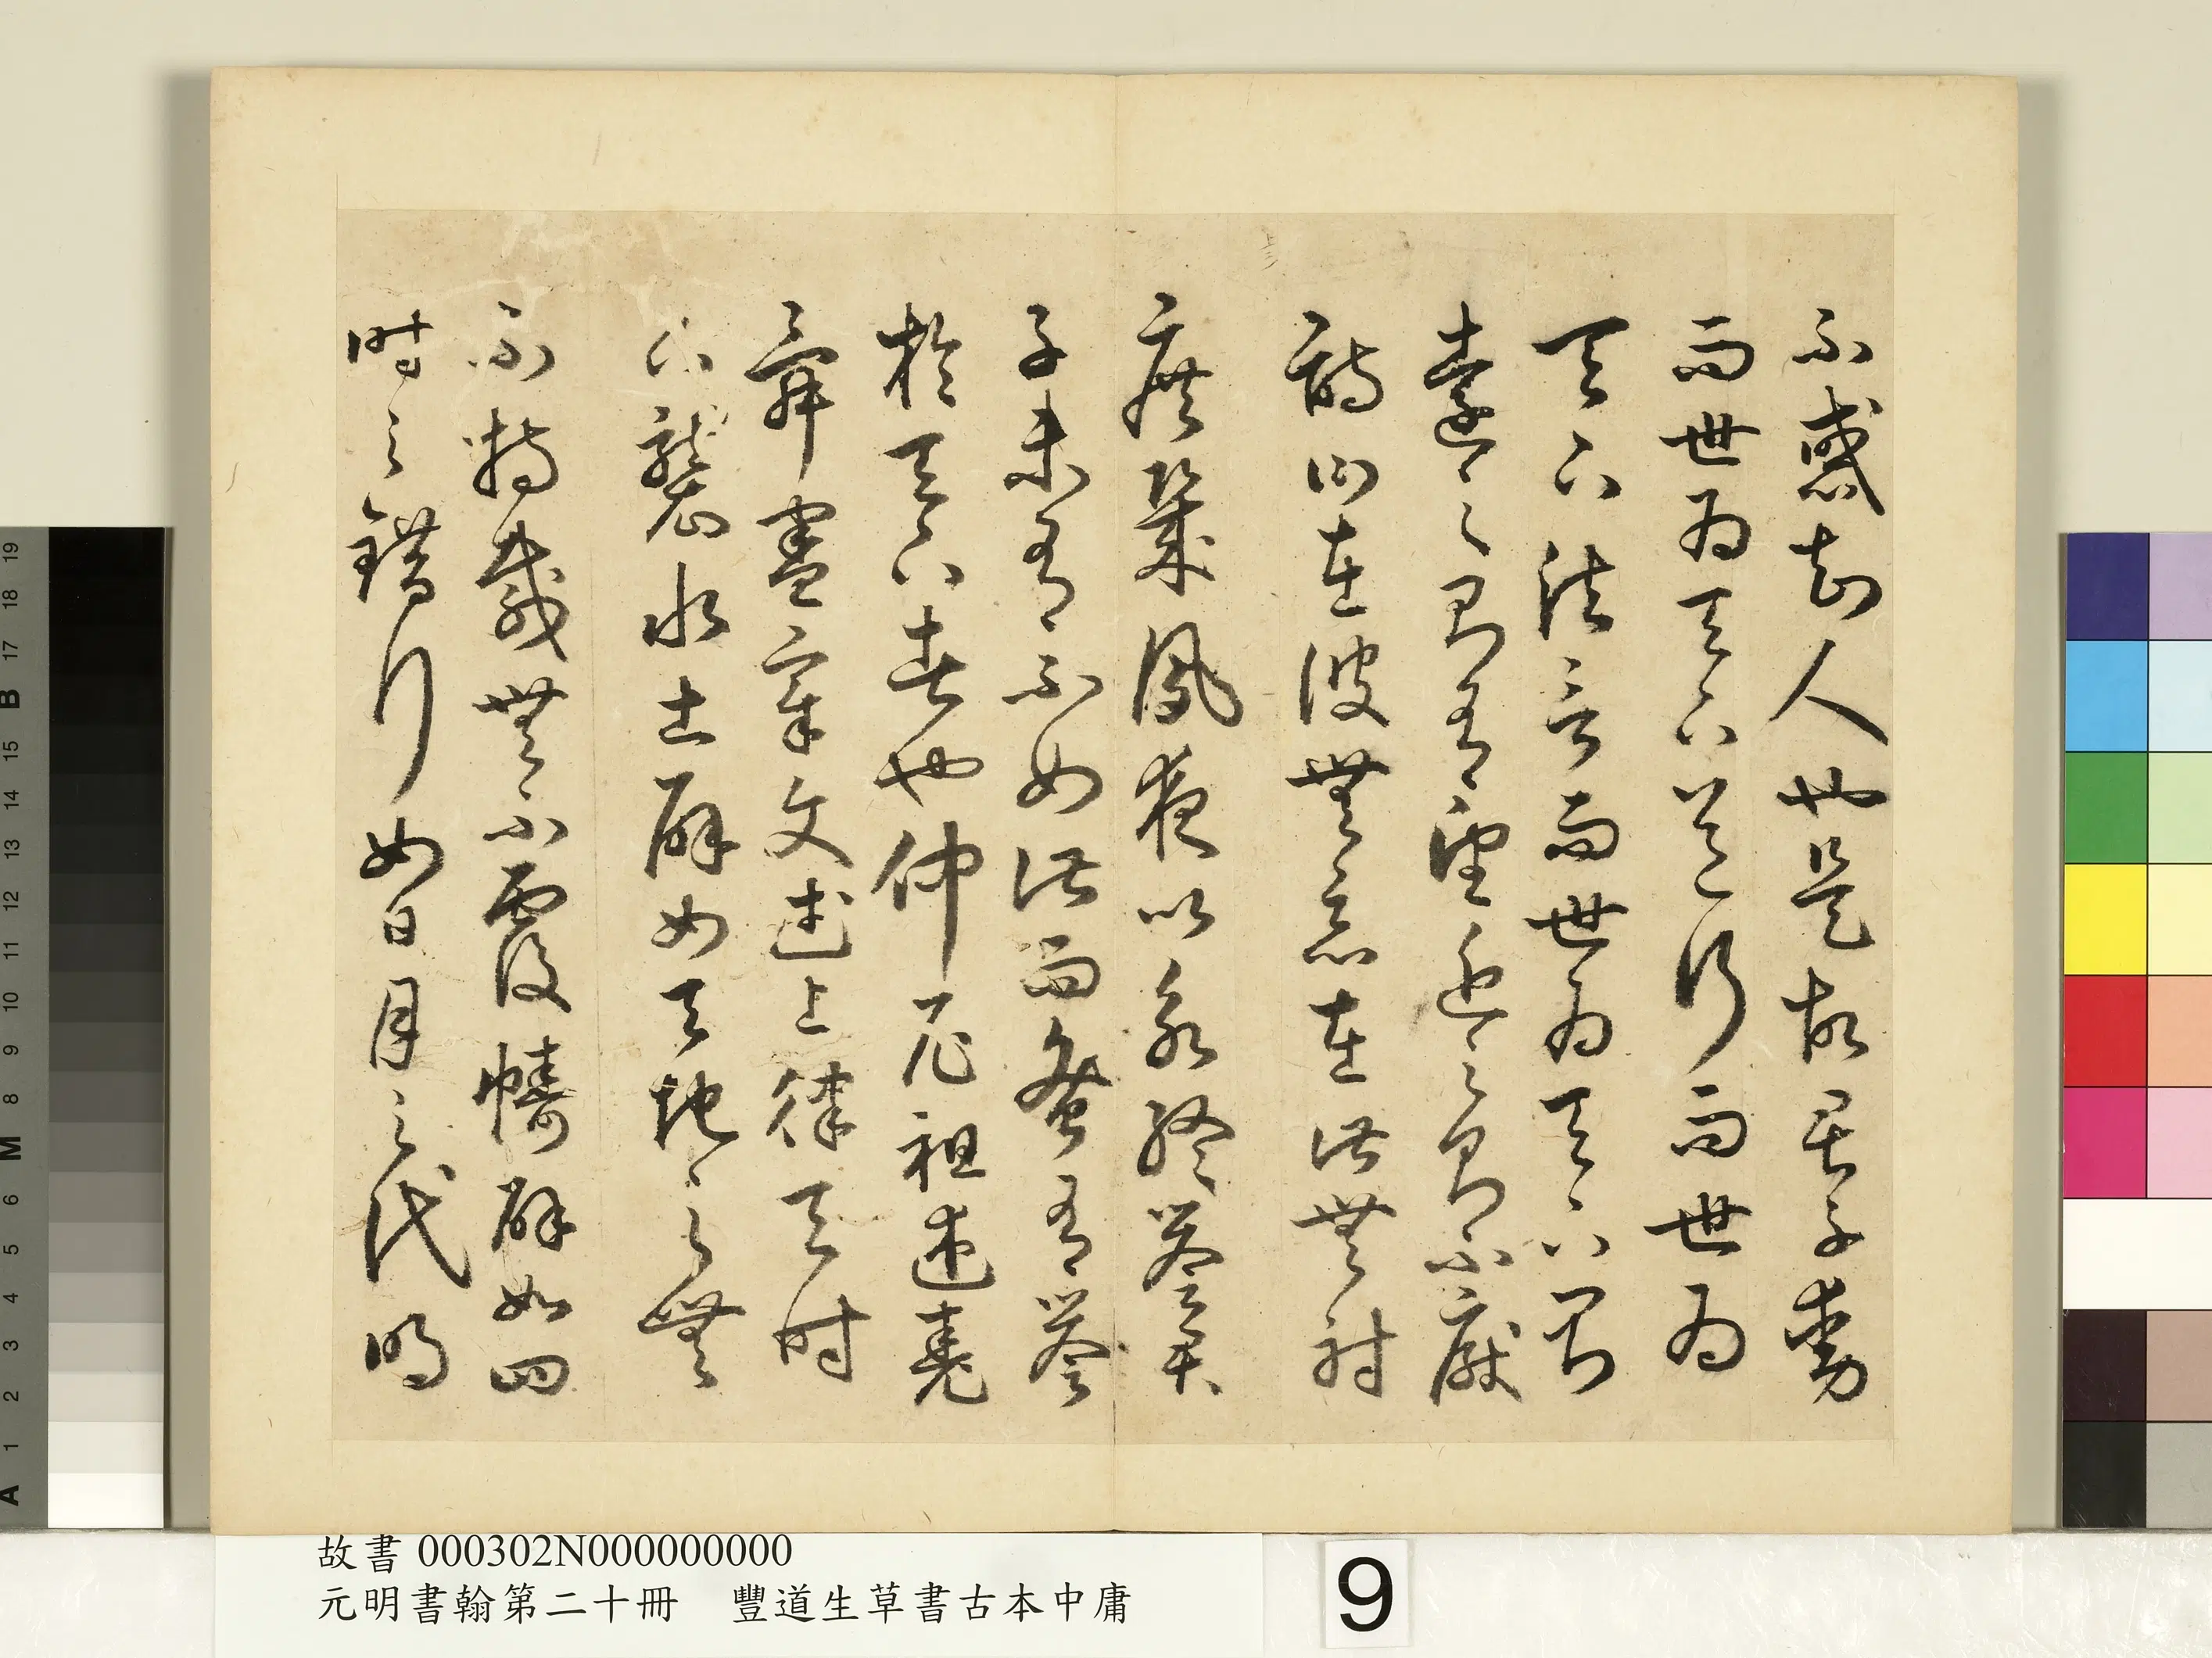 不惑知人也是故君子動
而世為天下道行而世為
天下法言而世為天下則
遠之則有望近之則不厭
詩曰在彼無惡在此無射
庶幾夙夜以永終譽君
子未有不如此而蚤有譽
於天下者也仲尼祖述堯
舜憲章文武上律天時
下襲水土辟如天地之無
不持載無不覆幬辟如四
時之錯行如日月之代明
故書 000302N000000000
元明書翰第二十冊 豐道生草書古本中庸
9
A 1 2 3 4 5 6 M 8 9 10 11 12 13 14 15 B 17 18 19